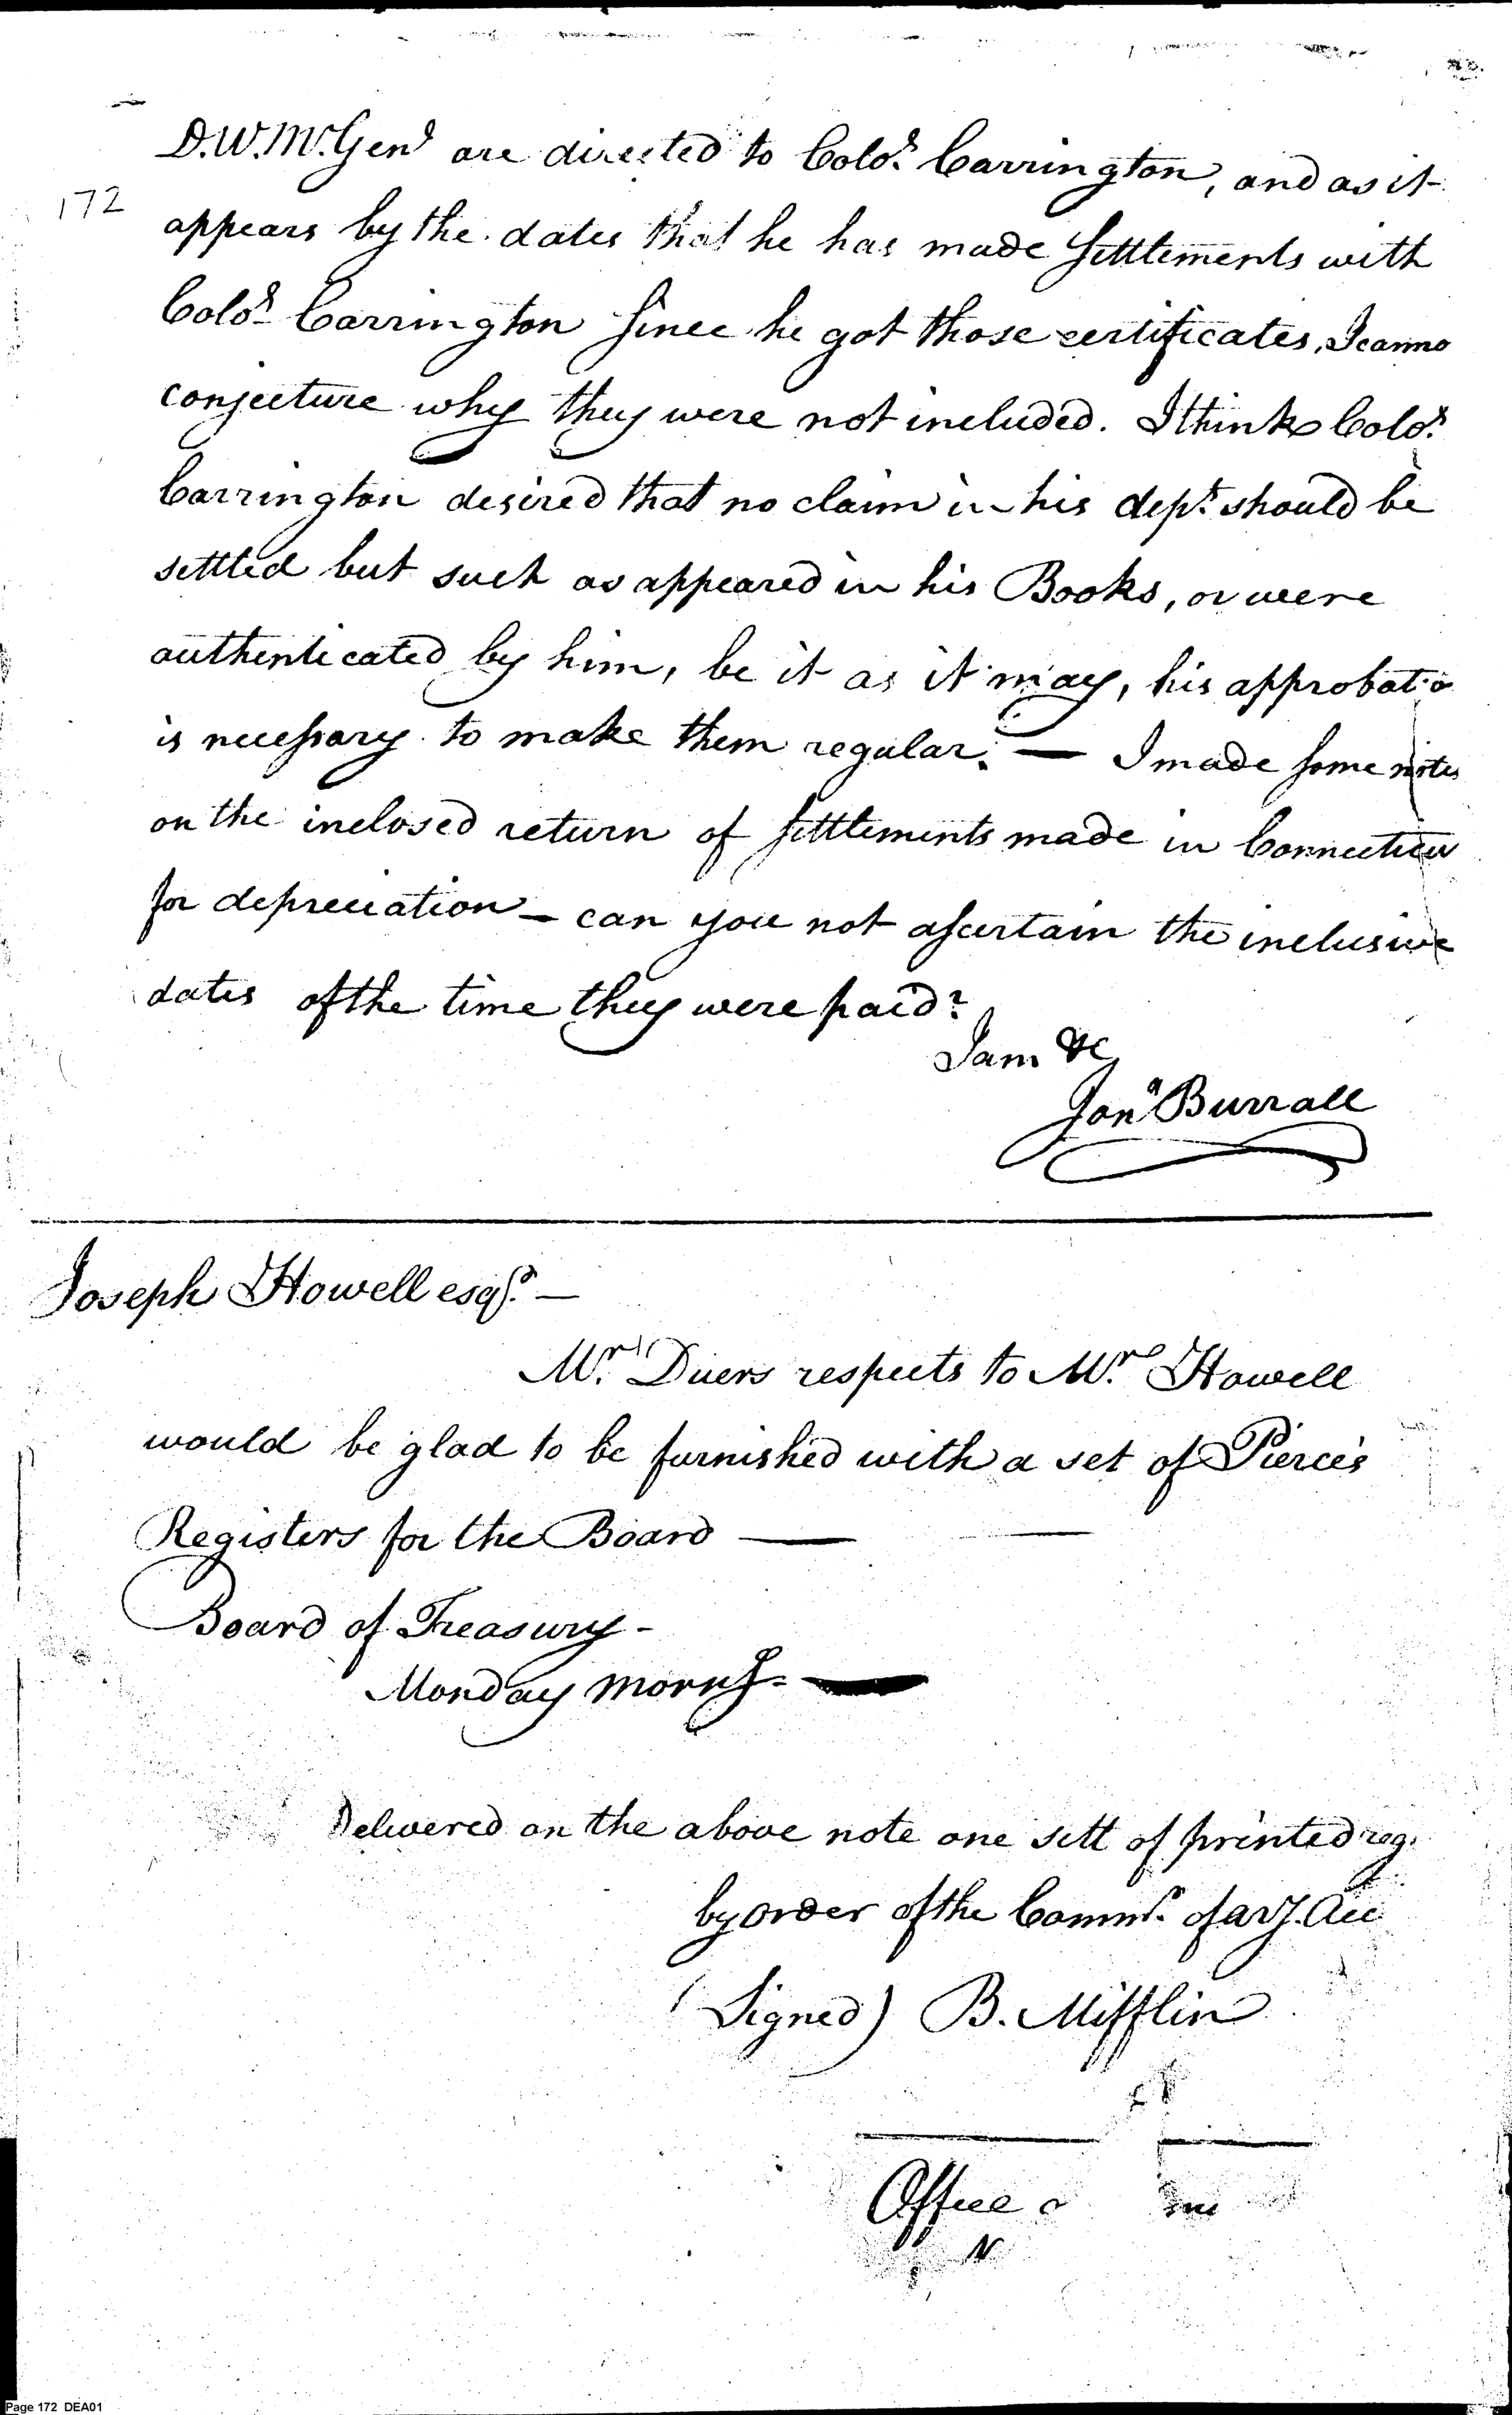 172
D. W. Mr. Genl are directed to Colo. Carrington, and as it
appears by the dates that he has made Settlements with
Colo. Carrington since he got those certificates, I canno
conjecture why they were not included. I think Colo.
Carrington desired that no claim in his dept. should be
settled but such as appeared in his Books, or were
authenticated by him, be it as it may, his approbatio
is necessary to make them regular. — I made some notes
on the inclosed return of settlements made in Connecticu
for depreciation — can you not ascertain the inclusive
dates of the time they were paid?
I am &c
Jona Burrall
Joseph Howell esqr. —
Mr. Duers respects to Mr. Howell
would be glad to be furnished with a set of Pierce's
Registers for the Board —
Board of Treasury -
Monday morng. —
Delivered on the above note one sett of printed reg.
by order of the Commr. of ary. Acc
(Signed) B. Mifflin
Office
Page 172 DEA01